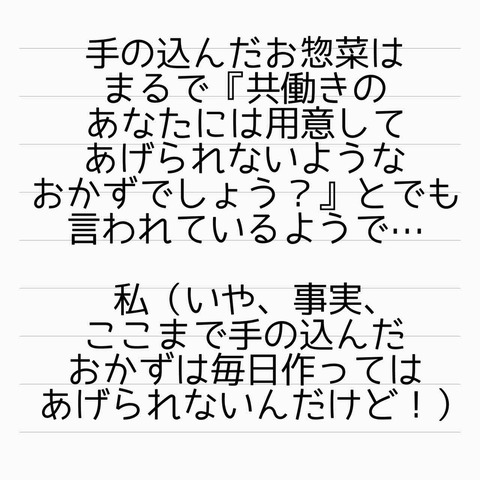 手の込んだお惣菜は
まるで『共働きの
あなたには用意して
あげられないような
おかずでしょう？』とでも
言われているようで…
私（いや、事実、
ここまで手の込んだ
おかずは毎日作っては
あげられないんだけど！）